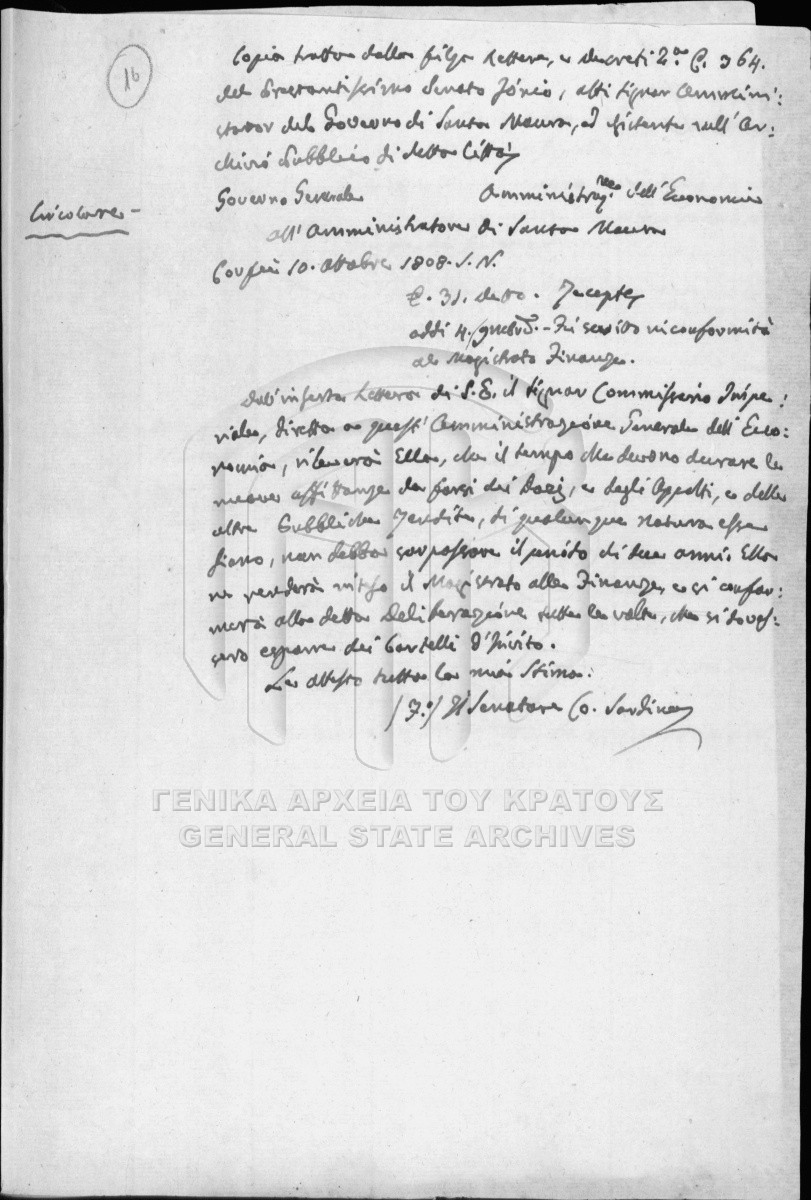 16
Copia tratta dalla filza Lettere, e Decreti 2.º C. 364.
del Prestantissimo Senato Jónio, alli Signor Ammini:
strator del Governo di Santa Maura, ed esistente nell'Ar:
chivio Pubblico di detta Città
Circolare –
Governo Generale Amministraz.ne dell'Economia
all'Amministratore di Santa Maura
Corfù 10. Ottobre 1808. S. N.
31. detto. Recepte
addi 4. 9mbre. – Fù scritto in conformità
al Magistrato Finanze.
Dall'inserta Lettera di S. E. il Signor Commissario Impe:
riale, diretta a quest'Amministrazione Generale dell'Eco:
nomia, rileverà Ella, che il tempo che devono durare le
nuove affittanze da farsi dei Dazj, e degli Appalti, e delle
altre Pubbliche Rendite, di qualunque natura esse
siano, non debba sorpassare il punto di due anni. Ella
ne renderà inteso il Magistrato alle Finanze, e si confor:
merà alla detta Deliberazione tutte le volte, che si doves:
sero esporre dei Cartelli d'Invito.
Le attesto tutta la mia Stima.
(F.º) Il Senatore Co. Sordina
ΓΕΝΙΚΑ ΑΡΧΕΙΑ ΤΟΥ ΚΡΑΤΟΥΣ
GENERAL STATE ARCHIVES